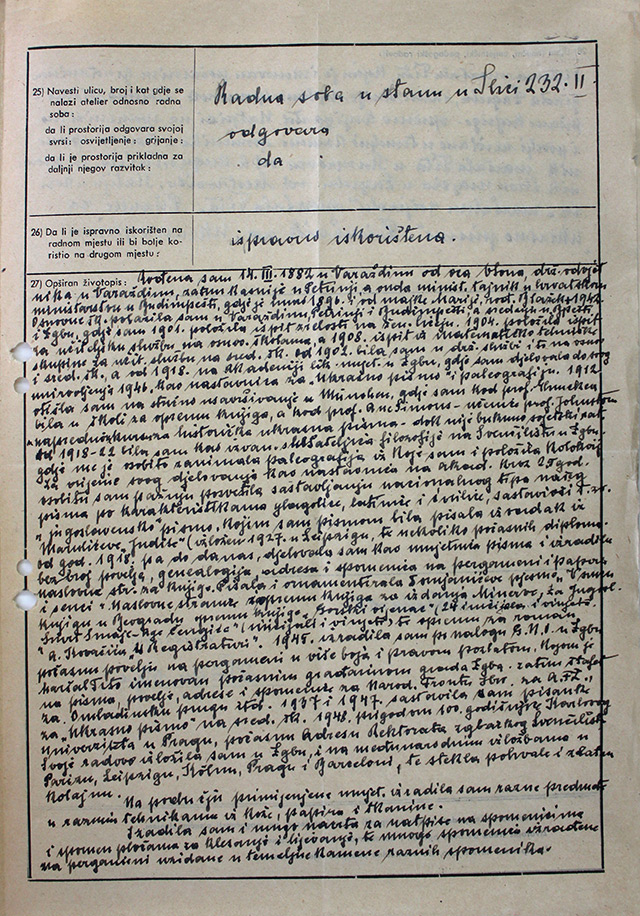 25) Navesti ulicu, broj i kat gdje se
nalazi atelier odnosno radna
soba:
da li prostorija odgovara svojoj
svrsi: osvijetljenje: grijanje:
da li je prostorija prikladna za
daljnji njegov razvitak:
Radna soba u stanu u Ilici 232. II
odgovara
da
26) Da li je ispravno iskorišten na
radnom mjestu ili bi bolje ko-
ristio na drugom mjestu:
ispravno iskorištena.
27) Opširan životopis: Rođena sam 14. III. 1882 u Varaždinu od oca
nika u Varaždinu, zatim kasnije u Petrinji, a onda minist. tajnik u hrvatskom
ministarstvu u Budimpešti, gdje je umro 1896. i od majke Marije, rođ.
Osnovne šk. polazila sam u Varaždinu, Petrinji i Budimpešti, a srednju u
i Zgbu, gdje sam 1901. položila ispit zrelosti na žen. liceju. 1904. položila ispit
za učiteljsku službu na osnov. školama, a 1908. ispit iz matematičko tehničke
skupine za učit. službu na sred. šk. od 1902. bila sam u drž. službi i to na osnov.
i sred. šk. a od 1918. na Akademiji lik. umjet. u Zgbu, gdje sam djelovala do svog
umirovljenja 1946. kao nastavnica za "Ukrasno pismo" i paleografiju. 1912
otišla sam na stručno usavršivanje u München, gdje sam kod prof. Ehmcken
bila u školi za opremu knjiga, a kod prof. Ane Simons - učenice prof. Johnstona
napredni kurs za historička ukrasna pisma - dok nije buknuo svjetski rat
Od 1918-22 bila sam kao izvan. slušateljica filozofije na Sveučilištu u Zgbu.
gdje me je osobito zanimala paleografija iz koje sam i položila kolokvij
Za vrijeme svog djelovanja kao nastavnica na Akad. kroz 25 god.
osobitu sam pažnju posvetila sastavljanju nacionalnog tipa našeg
pisma po karakteristikama glagolice, latinice i ćirilice, sastavivši t. zv.
"jugoslavensko" pismo. Kojim sam pismom bila pisala izvadak iz
Marulićeve "Judite" (izložen 1927. u Leipzigu, te nekoliko počasnih diploma.
od god. 1918. pa do danas, djelovala sam kao umjetnica pisma i izradila
bez broj povelja, genealogija, adresa i spomenica na pergameni i papiru
naslovne str. za knjige. Pisala i ornamentirala Domjanićeve pjesme "V suncu
i senci" Naslovne strane i opremu knjiga za izdanja Minerve, za Jugosl.
knjigu u Beogradu opremu knjige "Gorski vijenac" (24 inicijala i vinjeta.
Smrt Smail-Age Čengića" (inicijali i vinjete) te opremu za roman
"A. Kovačića U Registraturi". 1945. izradila sam po nalogu G.N.O. u Zgbu
počasnu povelju na pergameni u više boja i pravom pozlatom. Kojom je
Maršal Tito imenovan počasnim građaninom grada Zgba. zatim
na pisma, povelje, adrese i spomenice za Narod. Frontu Zgb. za A.F.Ž.,
za Omladinsku prugu itd. 1937 i 1947. sastavila sam pisanke
za "Ukrasno pismo" na sred. šk. 1948. prigodom 600. godišnjice Karlovog
Univerziteta u Pragu, počasnu Adresu Rektorata zgbačkog Sveučilišta
Svoje radove izložila sam u Zgbu, i na međunarodnim izložbama u
Parizu, Leipzigu, Kölnu, Pragu i Barceloni, te stekla pohvale i zlatnu
kolajnu.
Na području primijenjene umjet. izradila sam razne predmete
u raznim tehnikama iz kože, papira i tkanine.
Izradila sam i mnogo nacrta za natpise na spomenicima
i spomen pločama za klesanje i lijevanje, te mnogo spomenica izrađene
na pergameni uzidane u temeljne kamene raznih spomenika.